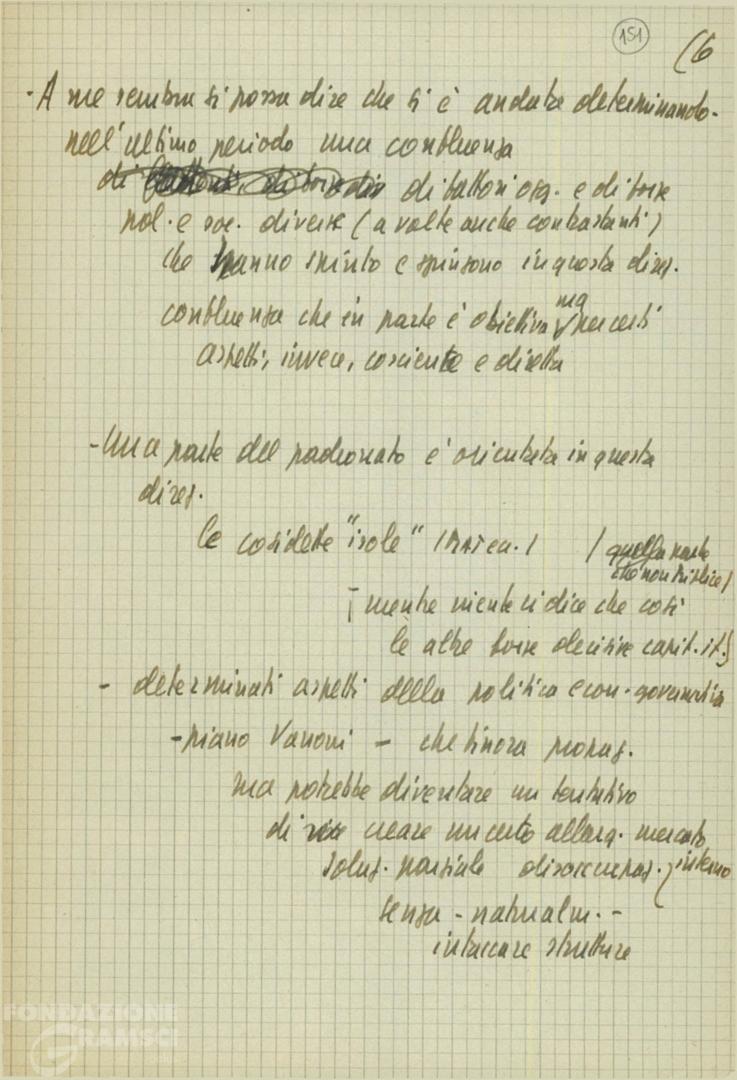 151
(6
- A me sembra si possa dire che si è andata determinando -
nell'ultimo periodo una confluenza
di fattori org. e di forze
pol. e soc. diverse ( a volte anche contrastanti )
che hanno spinto e spingono in questa direz.
confluenza che in parte è obiettiva ma per certi
aspetti, invece, cosciente e diretta
- Una parte del padronato è orientata in questa
direz.
le cosidette "isole"
/ quella parte
che non
mentre niente ci dice che così
le altre forze decisive capit. it.
- determinati aspetti della politica econ. governativa
- piano Vanoni - che finora propag.
ma potrebbe diventare un tentativo
di creare un certo allarg. mercato
interno
soluz. parziale disoccupaz.
senza - naturalm. -
intaccare strutture
FONDAZIONE
GRAMSCI